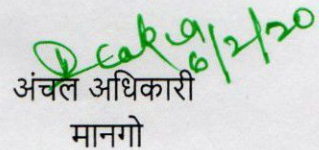 6/2/20
अंचल अधिकारी
मानगो